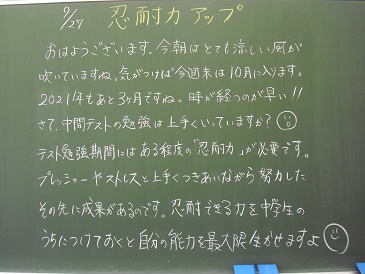 9/27 忍耐力アップ
おはようございます。今朝はとても涼しい風が
吹いていますね。気がつけば今週末は10月に入ります。
2021年もあと3ヶ月ですね。時が経つのが早い!!
さて、中間テストの勉強は上手くいっていますか?
テスト勉強期間にはある程度の「忍耐力」が必要です。
プレッシャーやストレスと上手くつきあいながら努力した
その先に成果があるのです。忍耐できる力を中学生の
うちにつけておくと自分の能力を最大限生かせますよ